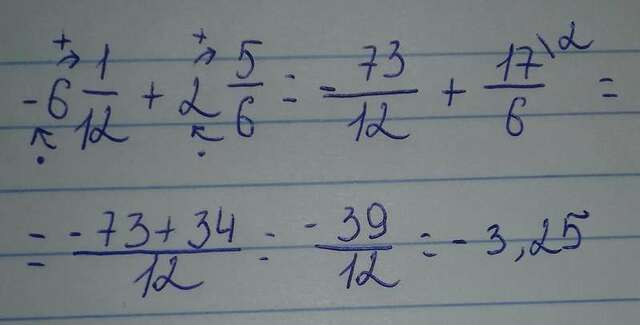 -6 1/12 + 2 5/6 = -73/12 + 17\2/6 =
= -73+34/12 = -39/12 = -3,25